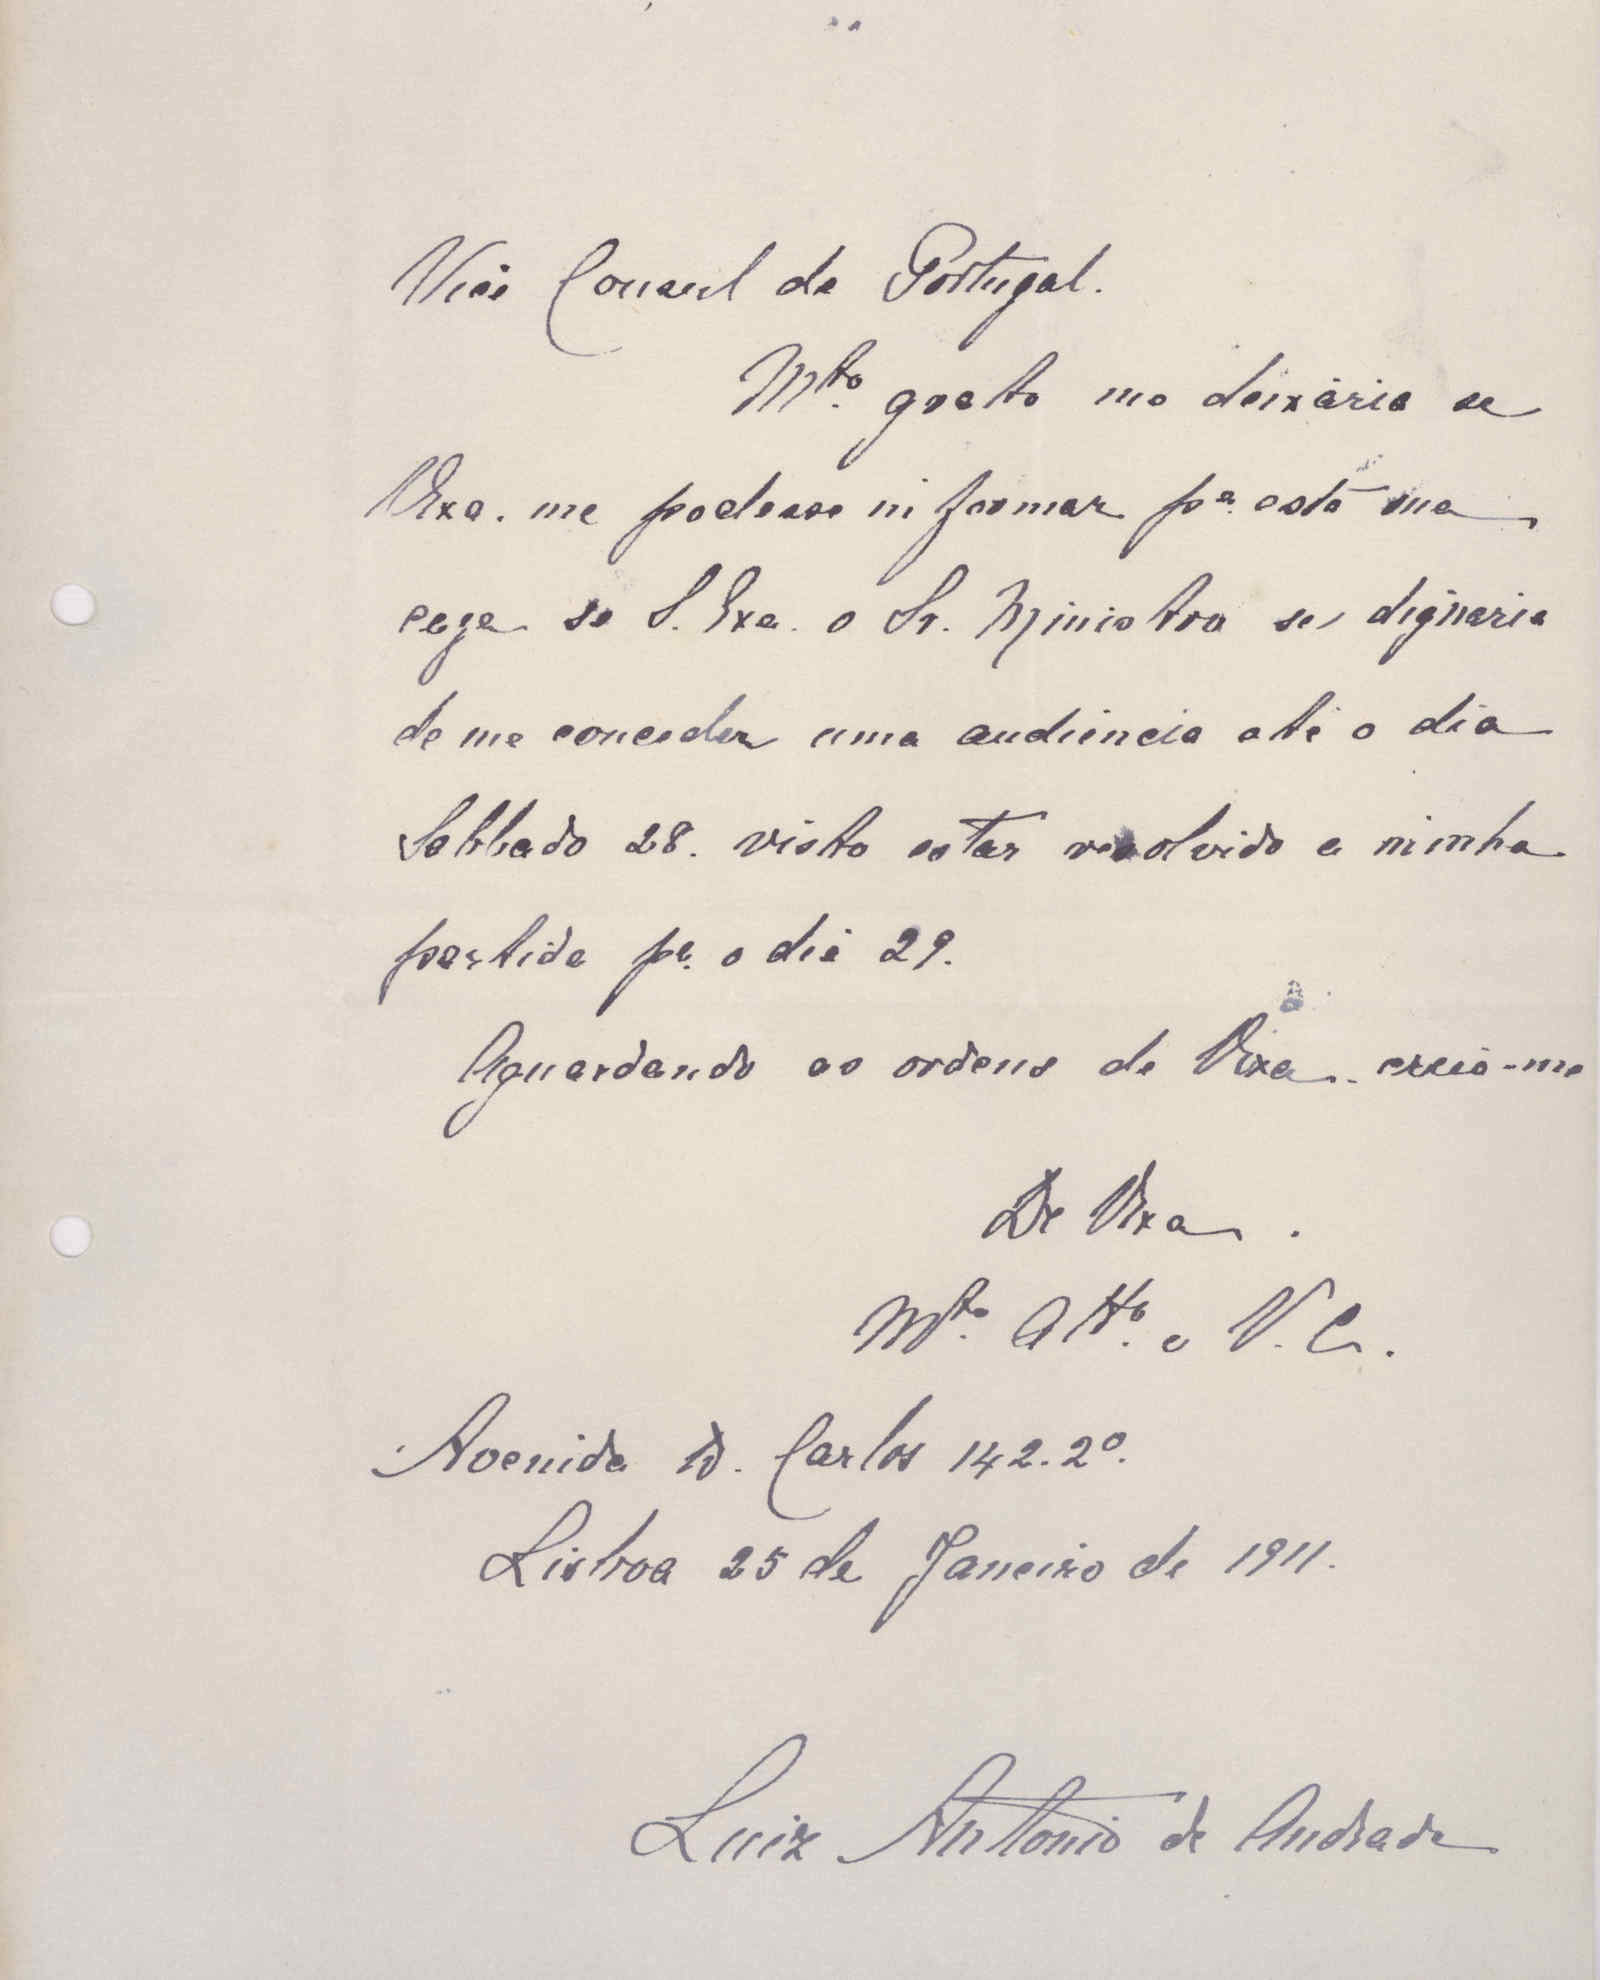 Vice Consul de Portugal.
Mto. grato me deixária se
VExa. me podesse informar pa. esta sua
caza se S. Exa. o Sr. Ministro se dignaria
de me conceder uma audiencia até o dia
Sabbado 28. visto estar resolvido a minha
partida pa. o dia 29.
Aguardando as ordens de VExa. creia-me
De VExa.
Mto. Atto. e V. C.
Avenida D. Carlos 142. 2º.
Lisboa 25 de Janeiro de 1911.
Luiz Antonio de Andrade